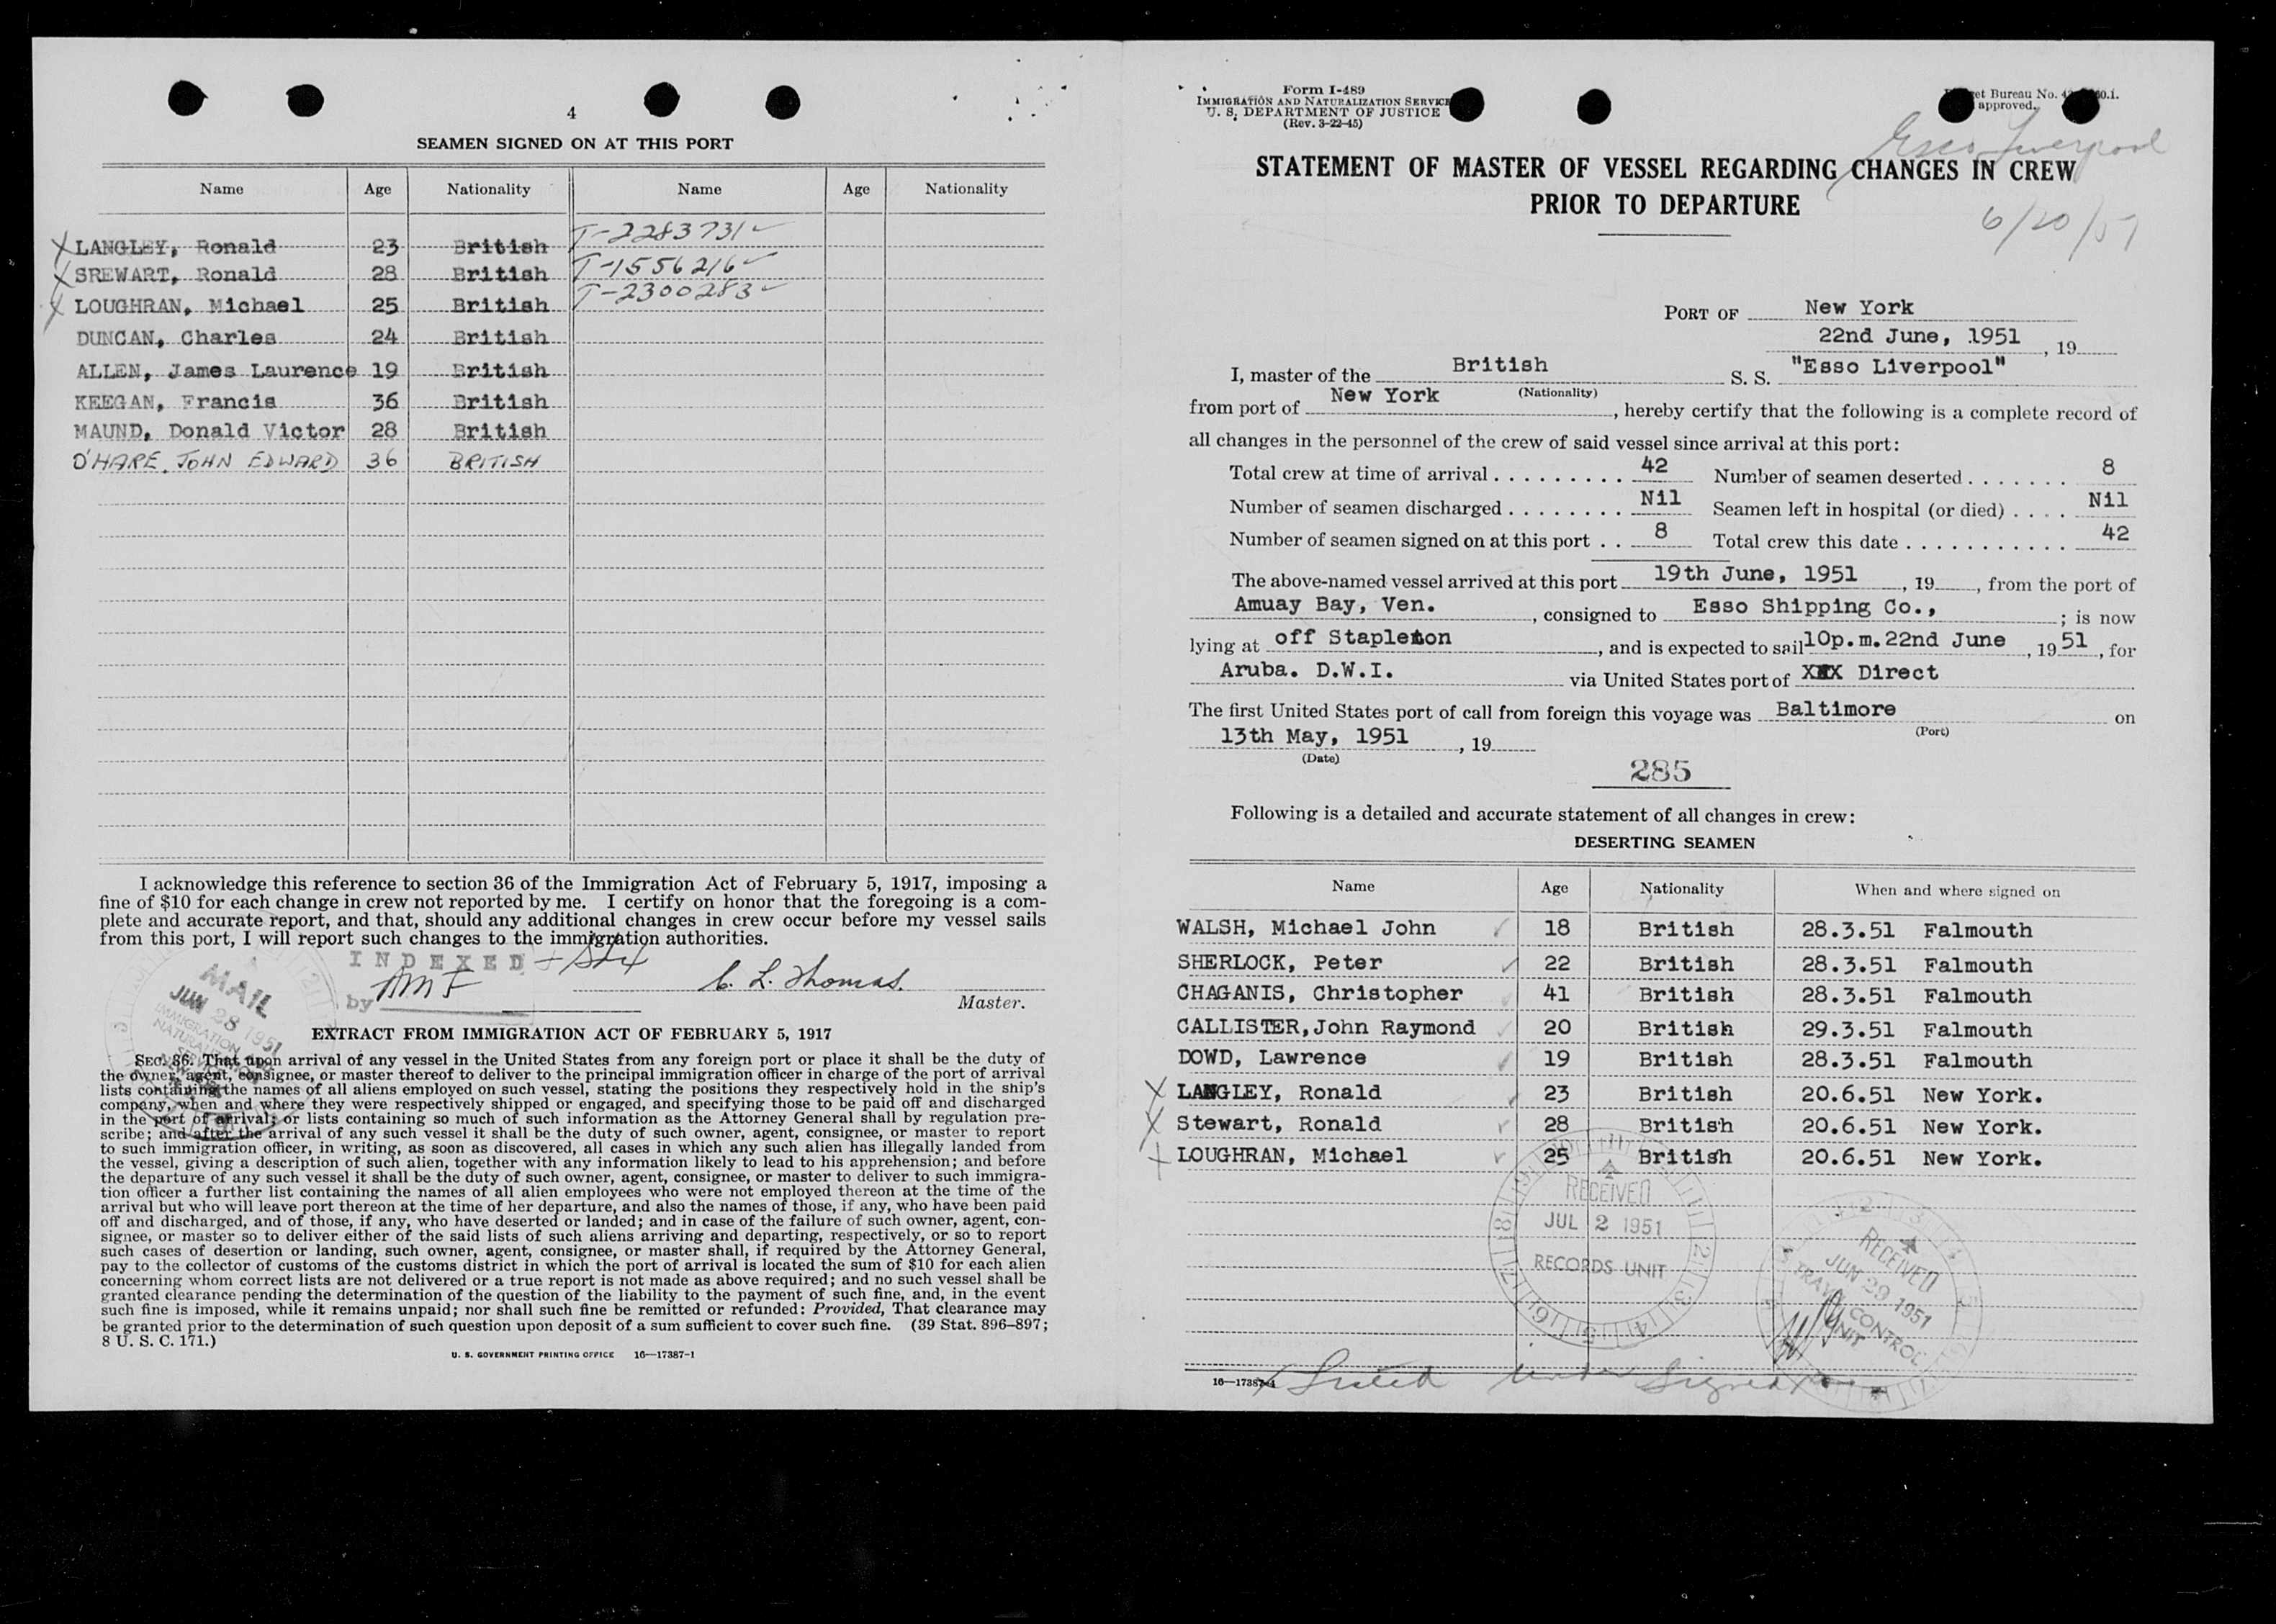 4
SEAMEN SIGNED ON AT THIS PORT
Name Age Nationality Name Age Nationality
X LANGLEY, Ronald 23 British T-2283731 ✓
X SREWART, Ronald 28 British T-1556216 ✓
X LOUGHRAN, Michael 25 British T-2300283 ✓
DUNCAN, Charles 24 British
ALLEN, James Laurence 19 British
KEEGAN, Francis 36 British
MAUND, Donald Victor 28 British
O'HARE, JOHN EDWARD 36 BRITISH
I acknowledge this reference to section 36 of the Immigration Act of February 5, 1917, imposing a
fine of $10 for each change in crew not reported by me. I certify on honor that the foregoing is a com-
plete and accurate report, and that, should any additional changes in crew occur before my vessel sails
from this port, I will report such changes to the immigration authorities.
INDEXED
by
C. L. Thomas.
Master.
MAIL
JUN 28 1951
IMMIGRATION
EXTRACT FROM IMMIGRATION ACT OF FEBRUARY 5, 1917
SEC. 36. That upon arrival of any vessel in the United States from any foreign port or place it shall be the duty of
the owner, agent, consignee, or master thereof to deliver to the principal immigration officer in charge of the port of arrival
lists containing the names of all aliens employed on such vessel, stating the positions they respectively hold in the ship's
company, when and where they were respectively shipped or engaged, and specifying those to be paid off and discharged
in the port of arrival; or lists containing so much of such information as the Attorney General shall by regulation pre-
scribe; and after the arrival of any such vessel it shall be the duty of such owner, agent, consignee, or master to report
to such immigration officer, in writing, as soon as discovered, all cases in which any such alien has illegally landed from
the vessel, giving a description of such alien, together with any information likely to lead to his apprehension; and before
the departure of any such vessel it shall be the duty of such owner, agent, consignee, or master to deliver to such immigra-
tion officer a further list containing the names of all alien employees who were not employed thereon at the time of the
arrival but who will leave port thereon at the time of her departure, and also the names of those, if any, who have been paid
off and discharged, and of those, if any, who have deserted or landed; and in case of the failure of such owner, agent, con-
signee, or master so to deliver either of the said lists of such aliens arriving and departing, respectively, or so to report
such cases of desertion or landing, such owner, agent, consignee, or master shall, if required by the Attorney General,
pay to the collector of customs of the customs district in which the port of arrival is located the sum of $10 for each alien
concerning whom correct lists are not delivered or a true report is not made as above required; and no such vessel shall be
granted clearance pending the determination of the question of the liability to the payment of such fine, and, in the event
such fine is imposed, while it remains unpaid; nor shall such fine be remitted or refunded: Provided, That clearance may
be granted prior to the determination of such question upon deposit of a sum sufficient to cover such fine. (39 Stat. 896–897;
8 U. S. C. 171.)
U. S. GOVERNMENT PRINTING OFFICE 16—17387-1
Form I-489
IMMIGRATION AND NATURALIZATION SERVICE
U. S. DEPARTMENT OF JUSTICE
(Rev. 3-22-45)
et Bureau No.
approved.
Esso Liverpool
STATEMENT OF MASTER OF VESSEL REGARDING CHANGES IN CREW
PRIOR TO DEPARTURE
6/20/51
PORT OF New York
22nd June, 1951, 19
I, master of the British S. S. "Esso Liverpool"
(Nationality)
from port of New York, hereby certify that the following is a complete record of
all changes in the personnel of the crew of said vessel since arrival at this port:
Total crew at time of arrival 42 Number of seamen deserted 8
Number of seamen discharged Nil Seamen left in hospital (or died) Nil
Number of seamen signed on at this port 8 Total crew this date 42
The above-named vessel arrived at this port 19th June, 1951, 19, from the port of
Amuay Bay, Ven., consigned to Esso Shipping Co.,; is now
lying at off Stapleton, and is expected to sail 10p.m.22nd June, 1951, for
Aruba. D.W.I. via United States port of XXX Direct
The first United States port of call from foreign this voyage was Baltimore on
(Port)
13th May, 1951, 19
(Date)
285
Following is a detailed and accurate statement of all changes in crew:
DESERTING SEAMEN
Name Age Nationality When and where signed on
WALSH, Michael John ✓ 18 British 28.3.51 Falmouth
SHERLOCK, Peter ✓ 22 British 28.3.51 Falmouth
CHAGANIS, Christopher ✓ 41 British 28.3.51 Falmouth
CALLISTER, John Raymond ✓ 20 British 29.3.51 Falmouth
DOWD, Lawrence ✓ 19 British 28.3.51 Falmouth
X LANGLEY, Ronald ✓ 23 British 20.6.51 New York.
X Stewart, Ronald ✓ 28 British 20.6.51 New York.
X LOUGHRAN, Michael ✓ 25 British 20.6.51 New York.
RECEIVED
JUL 2 1951
RECORDS UNIT
RECEIVED
JUN 29 1951
CONTROL
UNIT
16—17387-1
X Listed under Signed